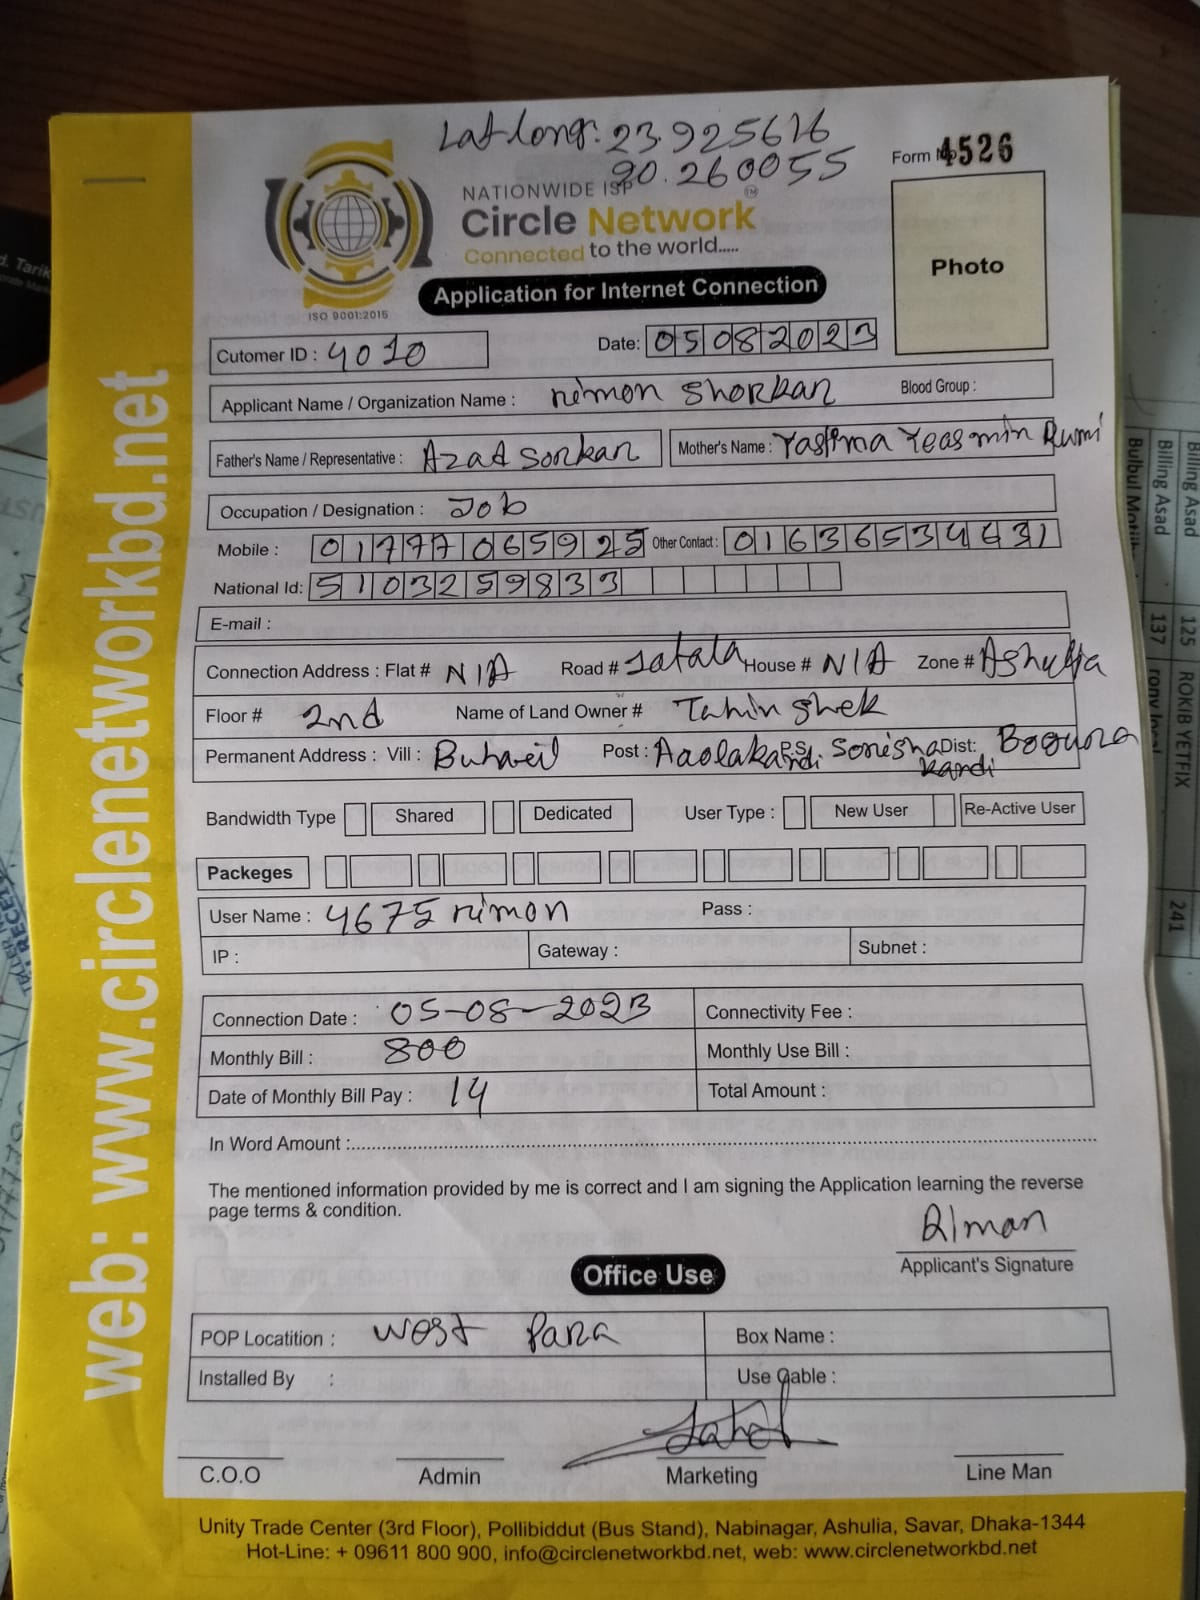 Lat long: 23.925616
90.260055
Form No 4526
NATIONWIDE ISP
Circle Network TM
Connected to the world.....
ISO 9001:2015
Application for Internet Connection
Photo
Cutomer ID : 4010
Date: 05082023
Applicant Name / Organization Name : rimon Shorkar Blood Group :
Father's Name / Representative : Azad Sorkar Mother's Name : Yeasmin Rumi
Occupation / Designation : Job
Mobile : 01777065925 Other Contact : 01636534431
National Id: 5103259833
E-mail :
Connection Address : Flat # N/A Road # Jatala House # N/A Zone # Ashulia
Floor # 2nd Name of Land Owner # Tahin Shek
Permanent Address : Vill : Post : P.S Sonisha kandi Dist: Bogura
Bandwidth Type Shared Dedicated User Type : New User Re-Active User
Packeges
User Name : 4675 rimon Pass :
IP : Gateway : Subnet :
Connection Date : 05-08-2023 Connectivity Fee :
Monthly Bill : 800 Monthly Use Bill :
Date of Monthly Bill Pay : 14 Total Amount :
In Word Amount :
The mentioned information provided by me is correct and I am signing the Application learning the reverse
page terms & condition.
Riman
Applicant's Signature
Office Use
POP Locatition : West Para Box Name :
Installed By : Use Cable :
C.O.O Admin Marketing Line Man
Unity Trade Center (3rd Floor), Pollibiddut (Bus Stand), Nabinagar, Ashulia, Savar, Dhaka-1344
Hot-Line: + 09611 800 900, info@circlenetworkbd.net, web: www.circlenetworkbd.net
web: www.circlenetworkbd.net
d. Tarik
Billing Asad 125 ROKIB YETFIX
Billing Asad 137 241